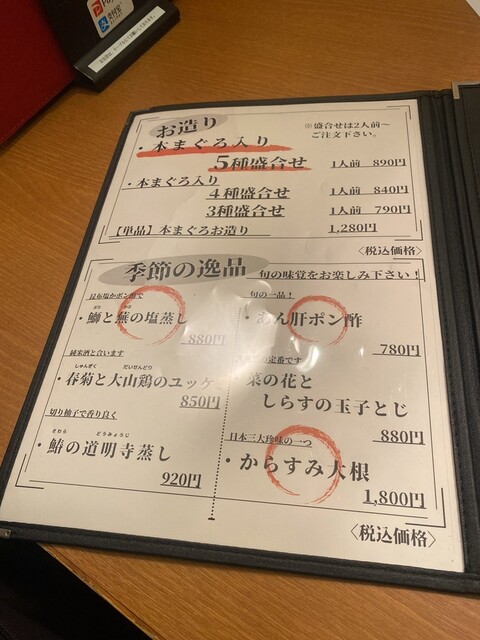 お造り
※盛合せは2人前～
ご注文下さい。
・本まぐろ入り
5種盛合せ 1人前 890円
・本まぐろ入り
4種盛合せ 1人前 840円
3種盛合せ 1人前 790円
【単品】本まぐろお造り 1,280円
〈税込価格〉
季節の逸品 旬の味覚をお楽しみ下さい！
昆布塩かポン酢で
・鰤と蕪の塩蒸し
880円
純米酒と合います
しゅんぎく だいせんどり
・春菊と大山鶏のユッケ
850円
切り柚子で香り良く
さわら どうみょうじ
・鰆の道明寺蒸し
920円
旬の一品！
・あん肝ポン酢
780円
の定番です
菜の花と
しらすの玉子とじ
880円
日本三大珍味の一つ
・からすみ大根
1,800円
〈税込価格〉